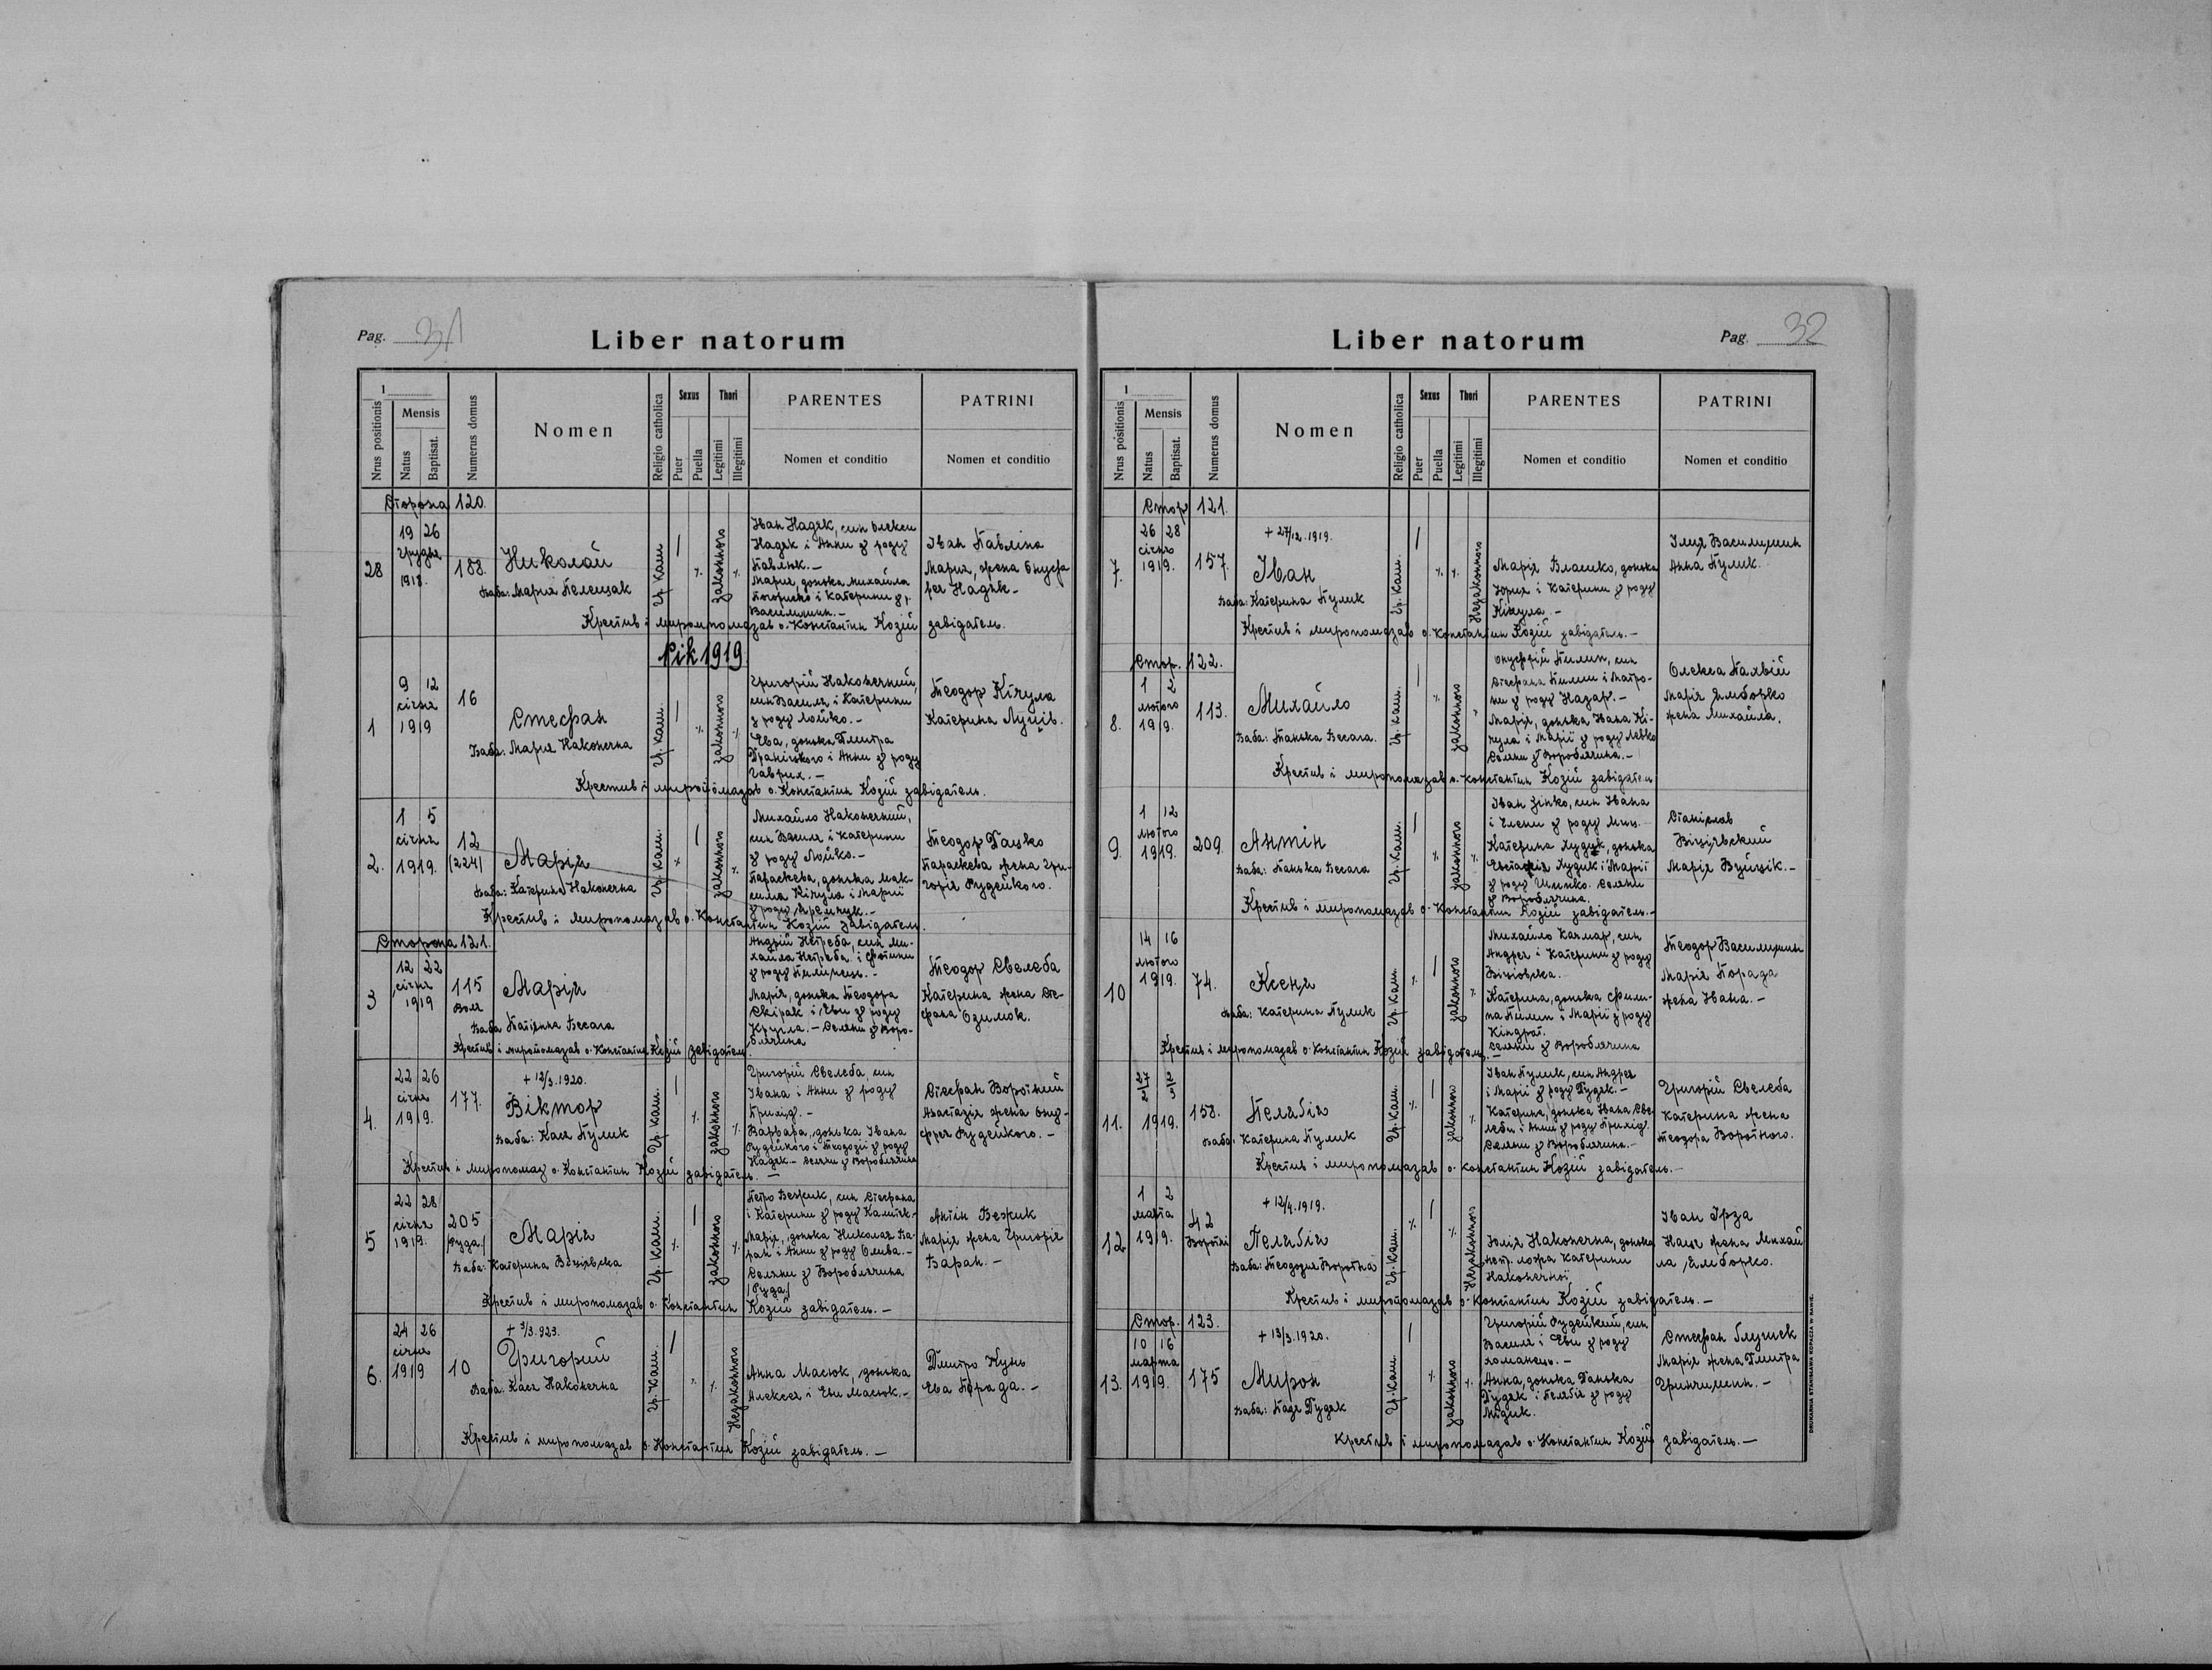 Pag. 31
Liber natorum
1
Nrus positionis
Mensis
Natus
Baptisat.
Numerus domus
Nomen
Religio catholica
Sexus
Puer
Puella
Thori
Legitimi
Illegitimi
PARENTES
Nomen et conditio
PATRINI
Nomen et conditio
Сторона 120.
28
19 26
грудня
1918.
188.
Николай
Баба: Мария Пелещак
Гр. Кат
законного
Іван Надяк, син Олекси
Надяк і Анни з роду
Павлюк.-
Мария, донька Михайла
і Катерини з р.
Василишин.-
Іван Павліна
Мария, жена Онуф
рея Надяк-
Крестив і миропомазав о. Константин Козій завідатель.
Рік 1919
1
9 12
січня
1919
16
Стефан
Баба: Мария Наконечна
Гр. Кат.
законного
Григорій Наконечний,
син Василя і Катерини
з роду Лойко.-
Ева, донька Дмитра
і Анни з роду
Гаврих.-
Теодор Кічула
Катерина Луців.
Крестив і миропомазав о. Константин Козій завідатель.
2.
1 5
січня
1919.
12
(224)
Марія
Баба: Катерина Наконечна
Гр. Кат.
законного
Михайло Наконечний,
син Василя і Катерини
з роду Лойко.-
Параскева, донька Мак-
сима Кічула і Марії
з роду Яремчук.-
Теодор Дацко
Параскева жена Гри-
горія Рудейкого.
Крестив і миропомазав о. Константин Козій завідатель.
Сторона 121.
3
12 22
січня
1919
115
Воля
Марія
Баба Татіянна Бесага
Андрій Нетреба, син Ми-
хайла Нетреба і Фотини
з роду Пилипець.-
Марія, донька Теодора
Скірак і Еви з роду
Кругла.- Селяни з Воро-
блячина
Теодор Свелеба
Катерина жена Сте-
фана Озимок.
Крестив і миропомазав о. Константин Козій завідатель
4.
22 26
січня
1919.
177.
+ 12/3.1920.
Віктор
Баба: Кася Пулик
Гр. Кат.
законного
Григорій Свелеба, син
Івана і Анни з роду
Прихід.-
Варвара, донька Івана
Рудейкого і Теодозії з роду
Надяк- Селяни з Вороблячина
Стефан Воротний
Анастазія жена Ону-
фрея Рудейкого.-
Крестив і миропомаз о. Константин Козій завідатель.-
5
22 28
січня
1919.
205
/Руда/
Марія
Баба: Катерина Віцівська
Гр. Кат.
законного
Петро Вежик, син Стефана
і Катерини з роду
Марія, донька Николая Ба-
ран і Анни з роду Олива.-
Селяни з Вороблячина
/Руда/
Антін Вежик
Марія жена Григорія
Баран.-
Крестив і миропомазав о. Константин Козій завідатель.-
6.
24 26
січня
1919
10
+ 3/3.923.
Григорий
Баба: Кася Наконечна
Гр. Кат.
Незаконного
Анна Масюк, донька
Алексея і Еви Масюк.-
Дмитро Кунь
Ева Порада.-
Крестив і миропомазав о. Константин Козій завідатель.-
Liber natorum
Pag. 32
1
Nrus positionis
Mensis
Natus
Baptisat.
Numerus domus
Nomen
Religio catholica
Sexus
Puer
Puella
Thori
Legitimi
Illegitimi
PARENTES
Nomen et conditio
PATRINI
Nomen et conditio
Стор 121.
7.
26 28
січня
1919.
157.
+ 27/12.1919.
Іван
Баба: Катерина Пулик
Гр. Кат.
Незаконного
Марія Власико, донька
Юрия і Катерини з роду
Кікула.-
Ілия Василишин
Анна Пулик.
Крестив і миропомазав о. Константин Козій завідатель.-
Стор. 122.
8.
1 2
лютого
1919.
113.
Михайло
Баба: Танька Бесага.
Гр. Кат.
законного
Онуфрій Пилип, син
Стефана Пилип і Матро-
ни з роду Назар.-
Марія, донька Івана Кі-
чула і Марії з роду Левко
Селяни з Вороблячина.-
Олекса Палвій
Марія Ямборко
жена Михайла.
Крестив і миропомазав о. Константин Козій завідатель
9.
1 12
лютого
1919.
209.
Антін
Баба: Танька Бесага
Гр. Кат.
законного
Іван Зінко, син Івана
і Елени з роду Миц.-
Катерина Худик, донька
Евстахія Худик і Марії
з роду Шимко. Селяни
з Вороблячина.
Станіслав
Віцівський
Марія Вуйцік.-
Крестив і миропомазав о. Константин Козій завідатель.-
10
14 16
лютого
1919.
74.
Ксеня
Баба: Катерина Пулик
Гр. Кат.
законного
Михайло Качмар, син
Андрея і Катерини з роду
Віцівська.-
Катерина, донька Фили-
па Пилип і Марії з роду
Кіндрат.
Селяни з Вороблячина
Теодор Василишин
Марія Порада
жена Івана.-
Крестив і миропомазав о. Константин Козій завідатель.-
11.
1919.
158.
Пелагія
Баба: Катерина Пулик
Гр. Кат.
законного
Іван Пулик, син Андрея
і Марії з роду Дудяк.-
Катерина, донька Івана Све
леби і Анни з роду Прихід
Селяни з Вороблячина.-
Григорій Свелеба
Катерина жена
Теодора Воротного.
Крестив і миропомазав о. Константин Козій завідатель.-
12.
1 2
марта
1919.
42
Воротні
+ 12/4.1919.
Пелагія
Баба: Теодозія Воротна
Гр. Кат.
Незаконного
Юлія Наконечна, донька
непр. ложа Катерини
Наконечної
Іван Ірза
Нация жена Михай
ла Ямборко.
Крестив і миропомазав о. Константин Козій завідатель.-
Стор. 123.
13.
10 16
марта
1919.
175
+ 13/3.1920.
Мирон
Баба: Пазя Дудяк
Гр. Кат.
законного
Григорій Рудейкий, син
Василя і Еви з роду
Романець.-
Анна, донька Данька
Дудяк і Пелагія з роду
Мідик.
Стефан Глушек
Марія жена Дмитра
Гринчишин.-
Крестив і миропомазав о. Константин Козій завідатель.-
DRUKARNIA STANISŁAWA KOPACZA W RAWIE.